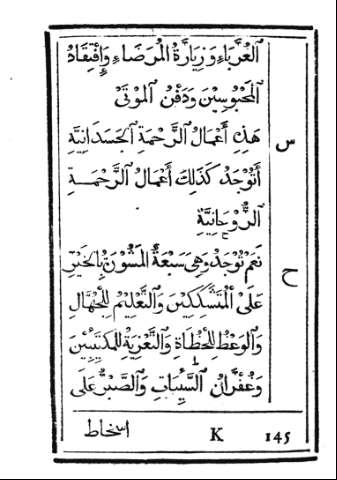 الغُرَبَاءِ وَزِيَارَةُ الْمَرَضَاءِ وَإِفْتِقَادُ
الْمَحْبُوسِيْنَ وَدَفْنُ الْمَوْتَى
س
هَذِهِ أَعْمَالُ الرَّحْمَةِ الْجَسَدَانِيَّةِ
أَتُوْجَدُ كَذَلِكَ أَعْمَالُ الرَّحْمَةِ
الرُّوْحَانِيَّةِ
ح
نَعَمْ تُوْجَدُ وَهِىَ سَبْعَةٌ الْمَشْوَرَةُ بِالخَيْرِ
عَلَىْ الْمُتَشَكِكِيْنَ وَالتَّعْلِيْمُ لِلْجُهَّالِ
وَالْوَعْظُ لِلْخُطَاةِ وَالتَّعْزِيَةُ لِلْمُكْتَئِبِيْنَ
وَغُفْرَانُ السَّيِّئَاتِ وَالصَّبْرُ عَلَى
اسخاط K 145